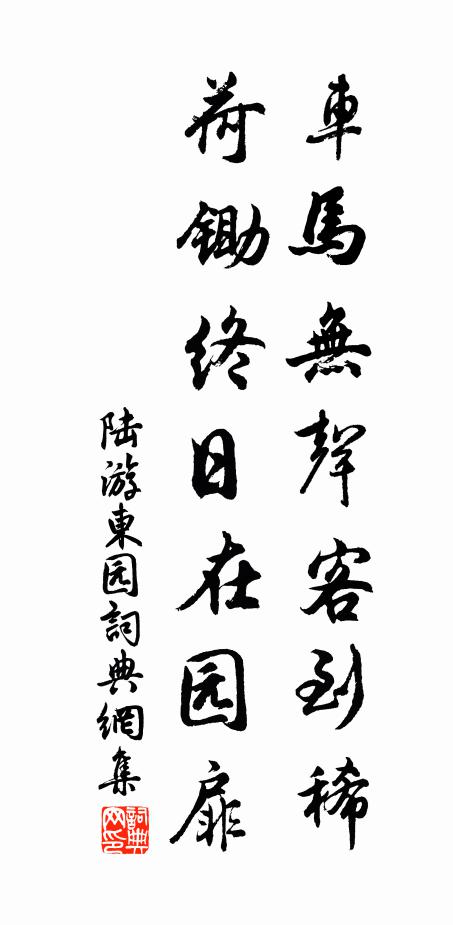 車馬無聲客到稀
荷鋤終日在园扉
陆游東园詞典網集
詞典网印